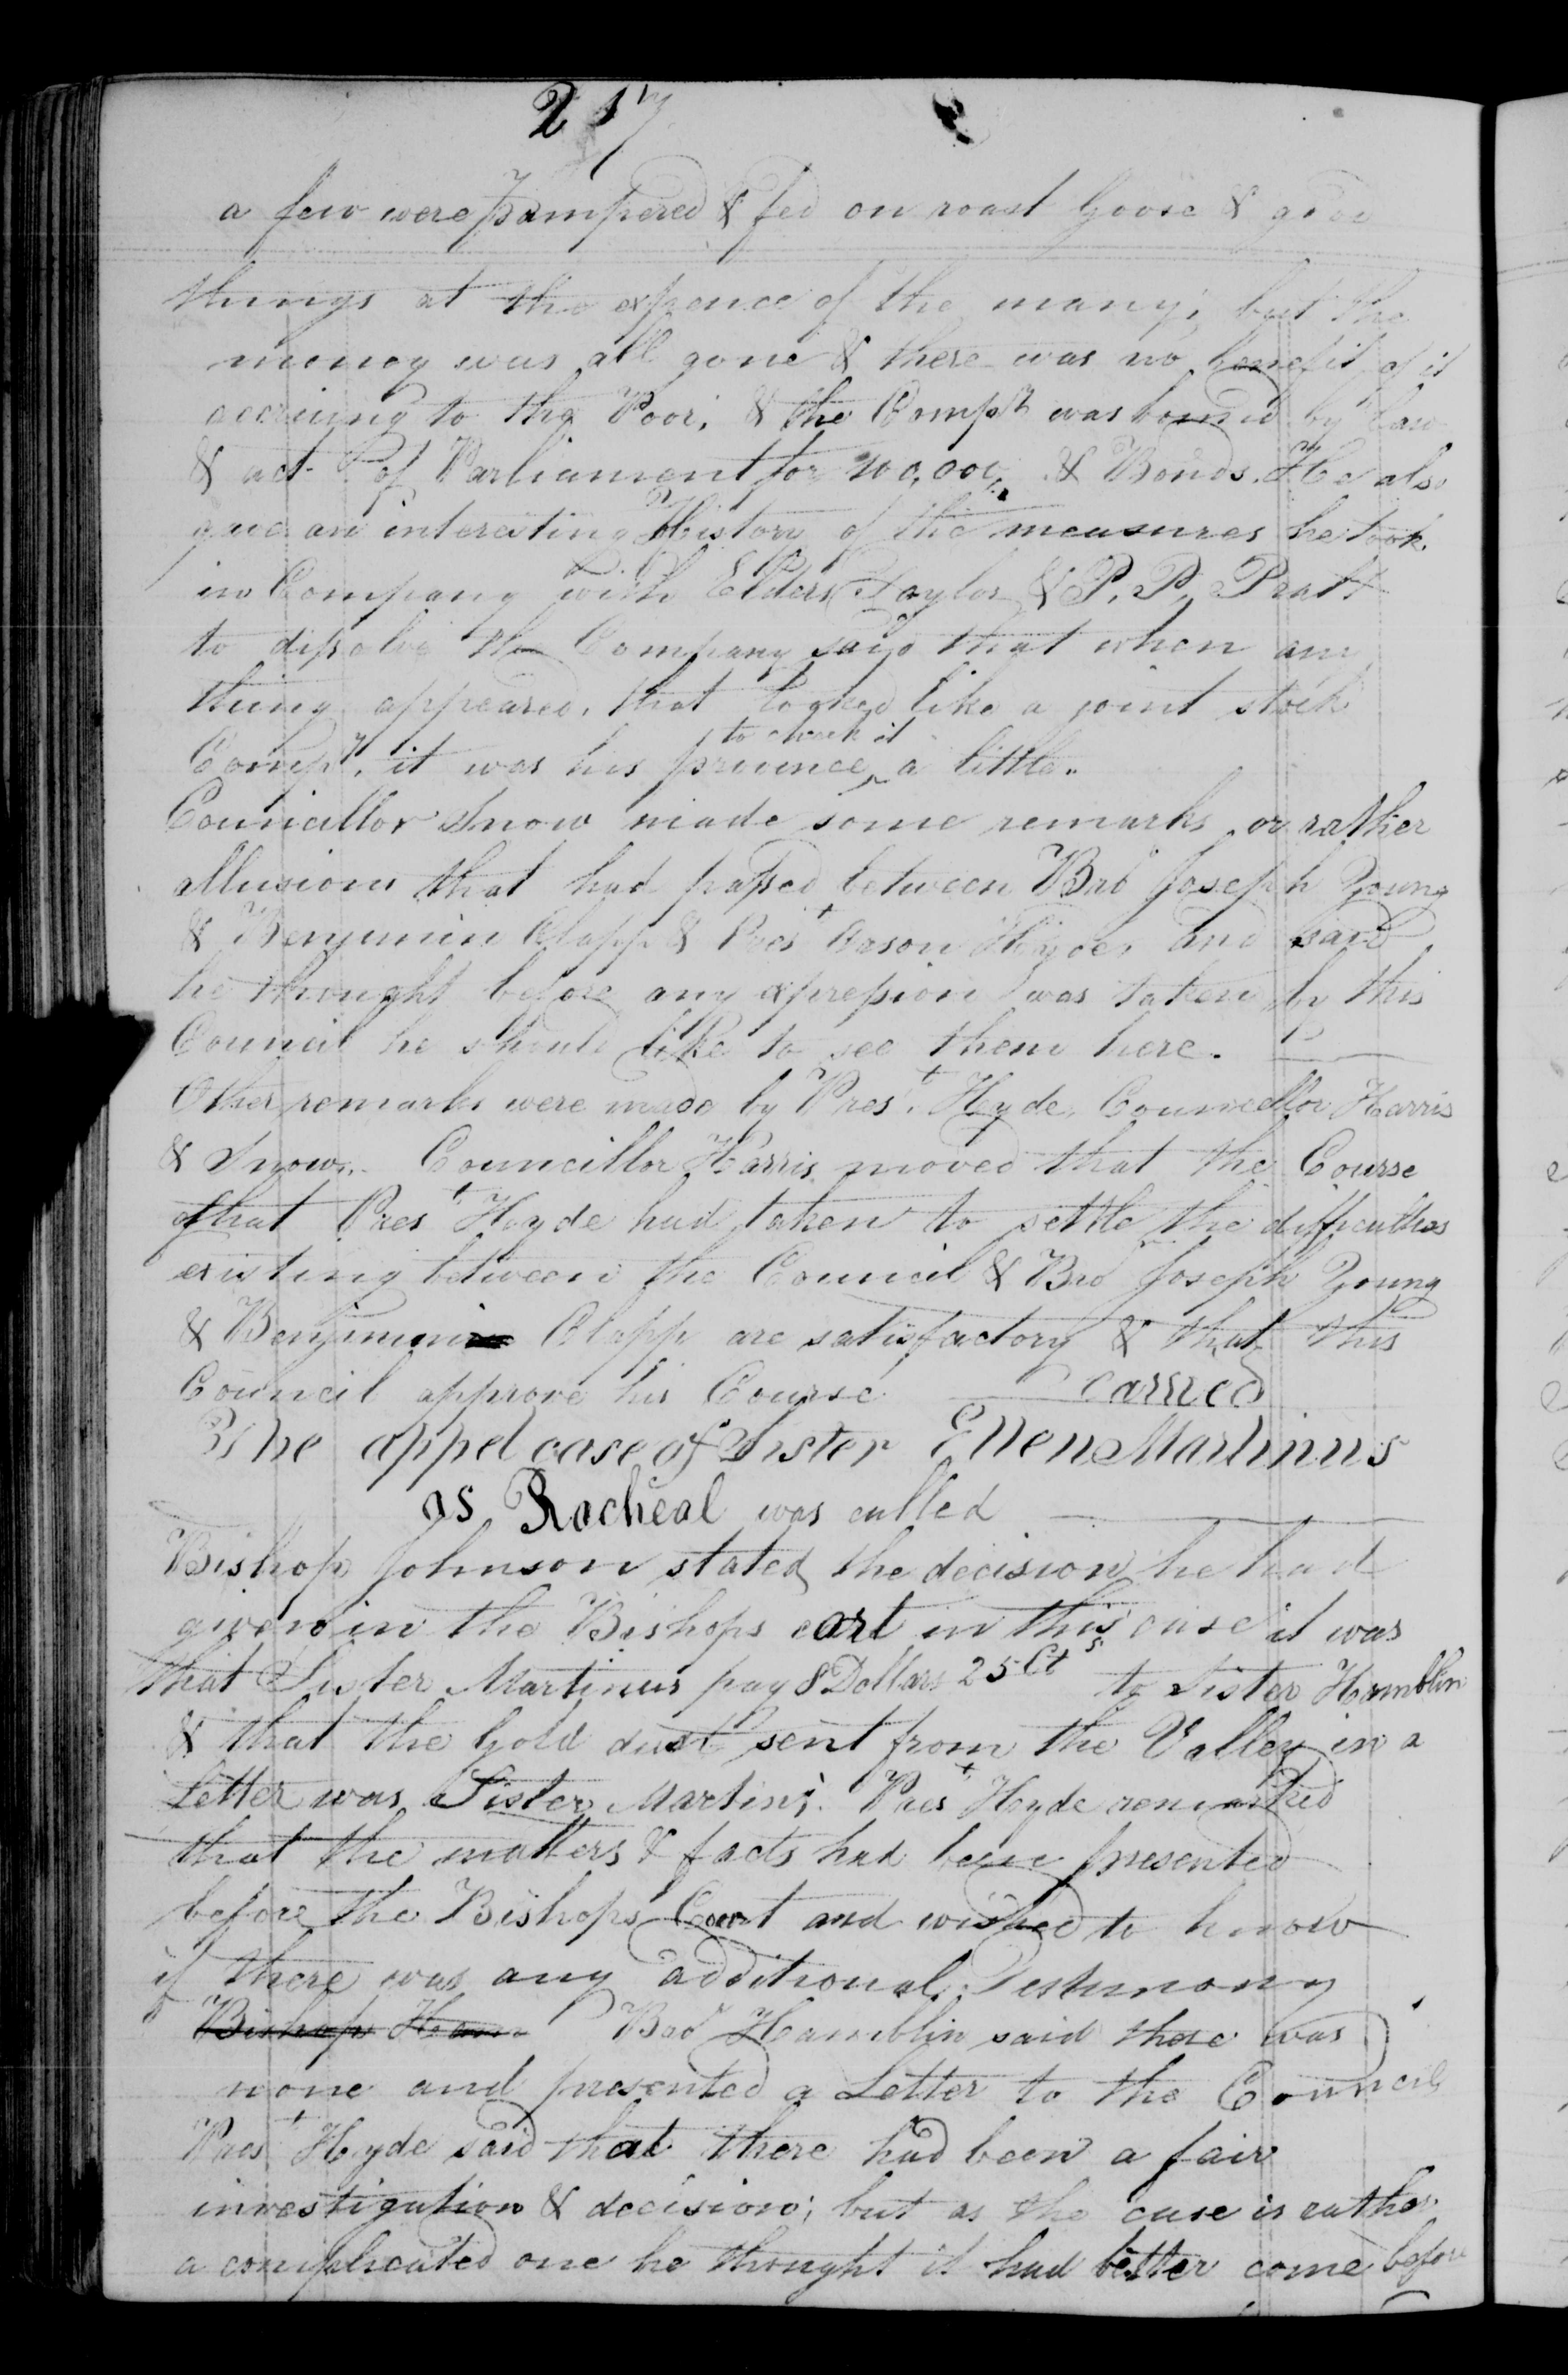 217
a few were pampered & fed on roast Goose & good
things at the expence of the many; but the
money was all gone & there was no benefit of it
accruing to the Poor; & the Compy was bound by law
& act of Parliament for 100,000, & Bonds. He also
gave an interesting History of the measures he took
in Company with Elders Taylor & P. P. Pratt
to dissolve the Company said that when any
thing appeared, that looked like a joint stock
Compy, it was his province to check it a little.
Councillor Snow made some remarks or rather
allusions that had passed between Bro Joseph Young
& Benjamin Clapp & Prest Orson Hyde, and said
he thought before any expression was taken by this
Council he should like to see them here.
Other remarks were made by Prest. Hyde, Councellor Harris
& Snow. Councillor Harris moved that the Course
that Prest Hyde had taken to settle the difficulties
existing between the Council & Bro Joseph Young
& Benjamin Clapp are satisfactory & that this
Council approve his Course carried
The appel case of Sister Ellen Martinus
as Racheal was called
Bishop Johnson stated the decision he had
given in the Bishops cort in this case it was
that Sister Martinus pay 8 Dollars 25 Cts to Sister Hamblin
& that the Gold dust sent from the Valley in a
Letter was Sister Martins. Prest Hyde remarked
that the matters & facts had been presented
before the Bishops Court and wished to know
if there was any additional Testimony
Bishop Ham Bro Hamblin said there was
none and presented a Letter to the Council
Prest Hyde said that there had been a fair
investigation & decision; but as the case is rather
a complicated one he thought it had better come before